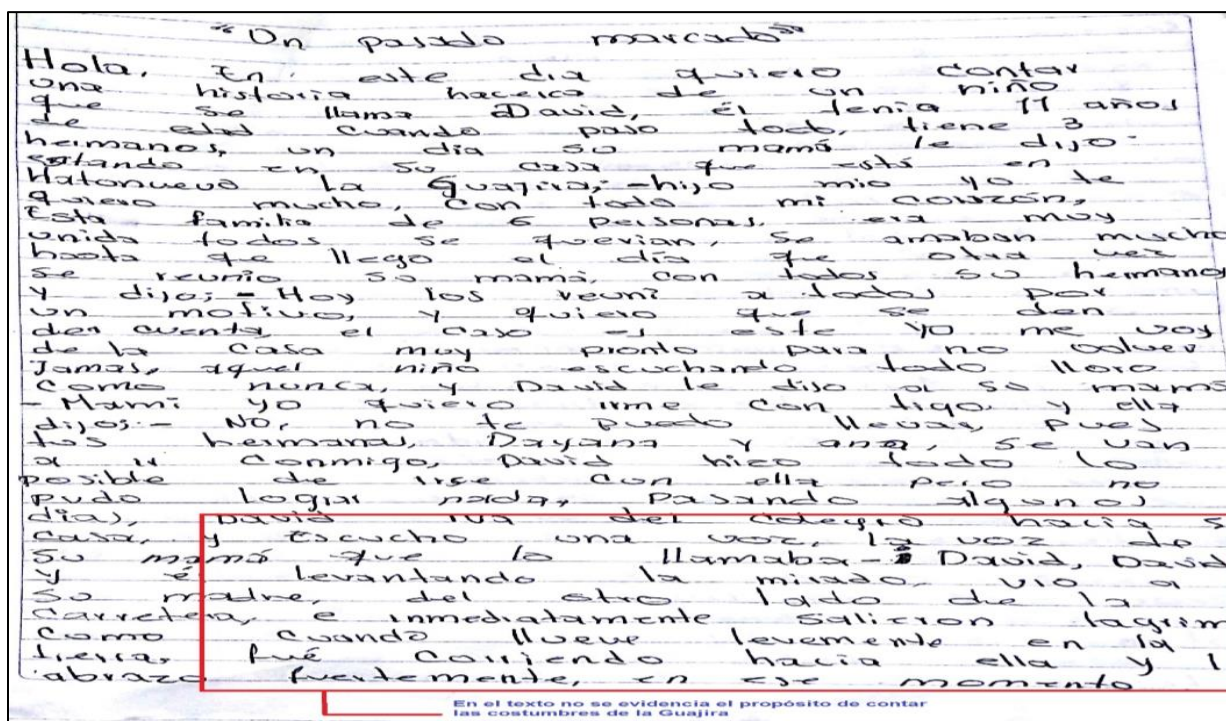 "Un pasado marcado"
Hola, En este dia quiero contar
una historia hacerca de un niño
que se llama David, él tenia 11 años
de edad cuando paso todo, tiene 3
heimanos, un día su mamá le dijo
estando en su casa que está en
Hatonuevo la Guajira; -hijo mio yo te
quiero mucho, con todo mi corazón,
Esta familia de 6 personas. era muy
unida todos se querian, se amaban mucho
hasta que llego el día que otra vez
se reunio su mamá, con todos su hermanos
y dijo; - Hoy los reuni a todos por
un motivo, y quiero que se den
den cuenta, el caso es este yo me voy
de la casa muy pronto para no volver
Jamas, aquel niño escuchando todo lloro
como nunca, y David le dijo a su mamá
- Mami yo quiero irme con tigo. y ella
dijo: - NO, no te puedo llevar, pues
tus hermanas, Dayana y ana, se van
a ir conmigo, David hizo todo lo
posible de irse con ella pero no
pudo lograr nada, Pasando algunos
dias, David iva del colegio hacia s
casa, y Escucho una voz, la voz de
su mamá que lo llamaba - David, David
y él levantando la mirada, vio a
su madre, del otro lado de la
carretera, e inmediatamente salieron lagrim
como cuando llueve levemente en la
tierra, fué corriendo hacia ella y l
abrazo fuertemente, en ese momento
En el texto no se evidencia el propósito de contar
las costumbres de la Guajira